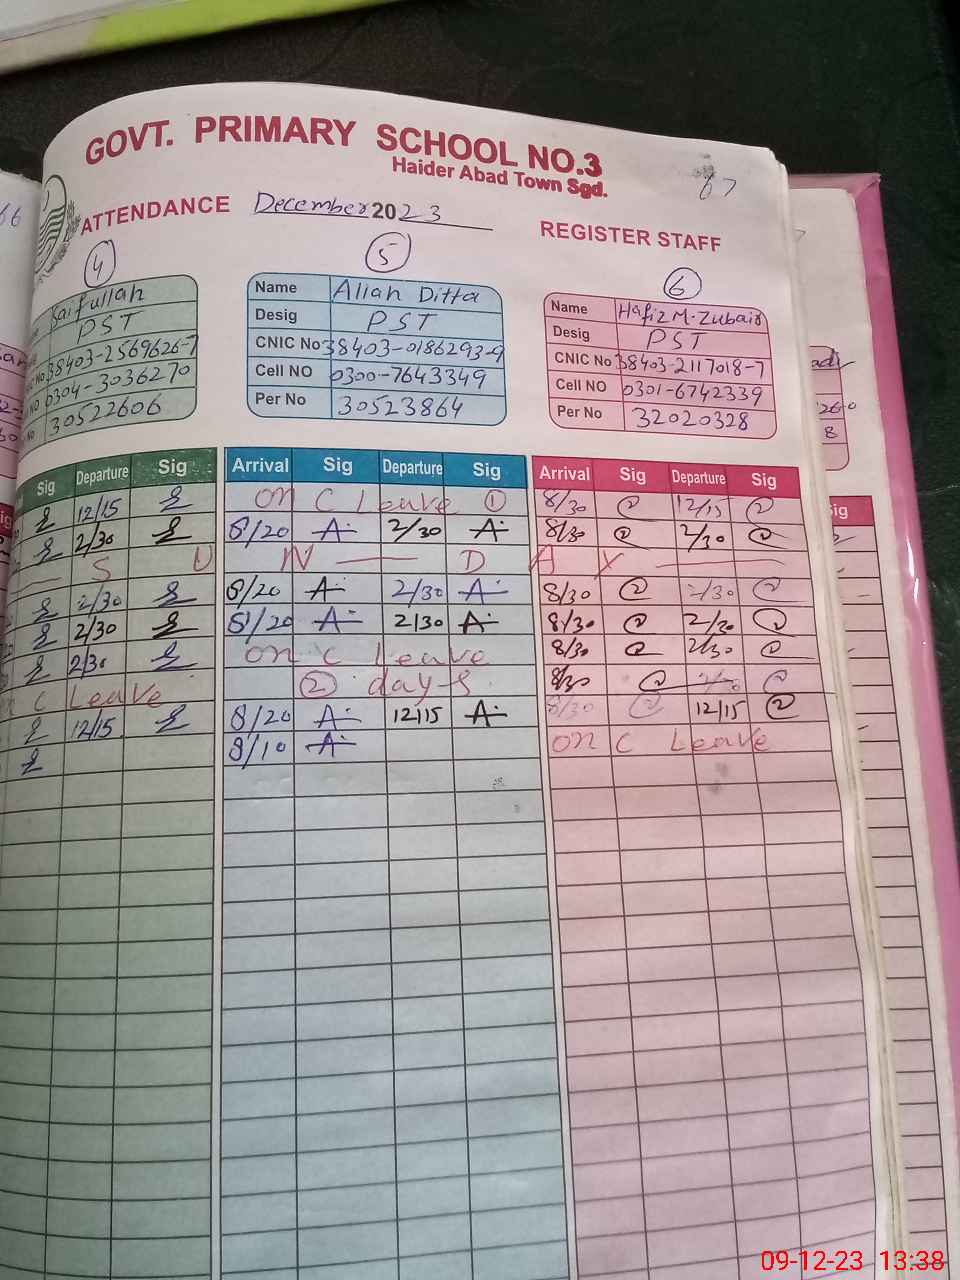 GOVT. PRIMARY SCHOOL NO.3
Haider Abad Town Sgd.
67
66
ATTENDANCE December 2023 REGISTER STAFF
4
Saifullah
PST
38403-2569626-7
0304-3036270
30522606
5
Name Allah Ditta
Desig PST
CNIC No 38403-0186293-9
Cell NO 0300-7643349
Per No 30523864
6
Name Hafiz M. Zubair
Desig PST
CNIC No 38403-2117018-7
Cell NO 0301-6742339
Per No 32020328
Sig Departure Sig Arrival Sig Departure Sig Arrival Sig Departure Sig
12/15 on C Leave 1 8/30 12/15
2/30 8/20 A 2/30 A 8/30 2/30
S U N D A Y
2/30 8/20 A 2/30 A 8/30 2/30
2/30 8/20 A 2/30 A 8/30 2/30
2/30 on C Leave 8/30 2/30
C Leave 2 days 8/30
12/15 8/20 A 12/15 A 8/30 12/15
8/10 A on C Leave
09-12-23 13:38